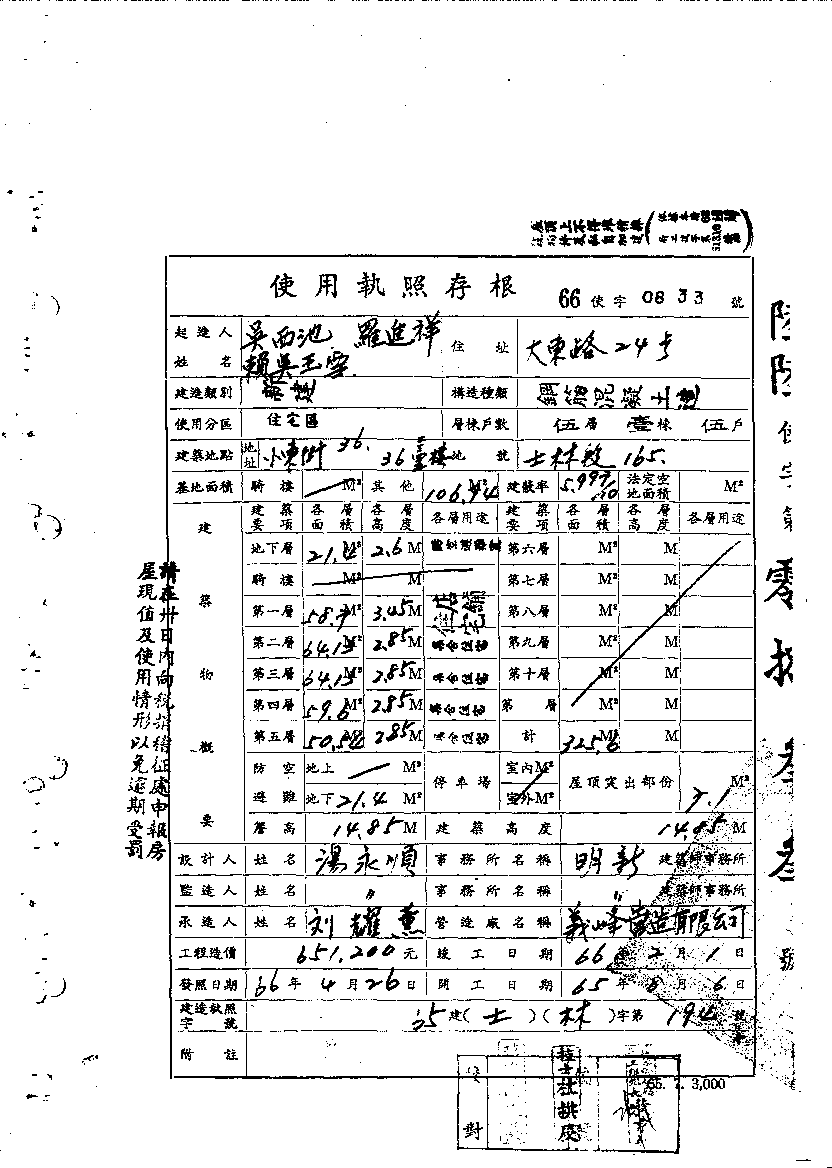 使用執照存根 66 使字 0833 號
起造人姓名 吳西池 羅進祥 賴吳玉雲 住址 大東路24号
建造類別 新建 構造種類 鋼筋混凝土造
使用分區 住宅區 層棟戶數 伍層 壹棟 伍戶
建築地點 地址 小東街36. 36 地號 士林段165.
基地面積 騎樓 M² 其他 106.94 M² 建蔽率 法定空地面積 M²
建築物概要
建築要項 各層面積 各層高度 各層用途 建築要項 各層面積 各層高度 各層用途
地下層 21.4 M² 2.6 M 第六層 M² M
騎樓 M² M 第七層 M² M
第一層 58.9 M² 3.45 M 店舖住宅 第八層 M² M
第二層 64.15 M² 2.85 M 集合住宅 第九層 M² M
第三層 64.15 M² 2.85 M 集合住宅 第十層 M² M
第四層 59.6 M² 2.85 M 集合住宅 第 層 M² M
第五層 M² 2.85 M 集合住宅 計 325.6 M²
防空避難 地上 M² 地下 21.4 M² 停車場 室內 M² 室外 M² 屋頂突出部份 M²
簷高 14.85 M 建築高度 14.85 M
設計人 姓名 湯永順 事務所名稱 明新 建築師事務所
監造人 姓名 〃 事務所名稱 〃 建築師事務所
承造人 姓名 刘耀薰 營造廠名稱 義峰營造有限公司
工程造價 651,200 元 竣工日期 66 年 2 月 1 日
發照日期 66 年 4 月 26 日 開工日期 65 年 8 月 6 日
建造執照字號 65 建(士)(林)字第 194 號
附註
66. 7. 3,000
校對
請在卅日內向稅捐稽征處申報房
屋現值及使用情形以免逾期受罰